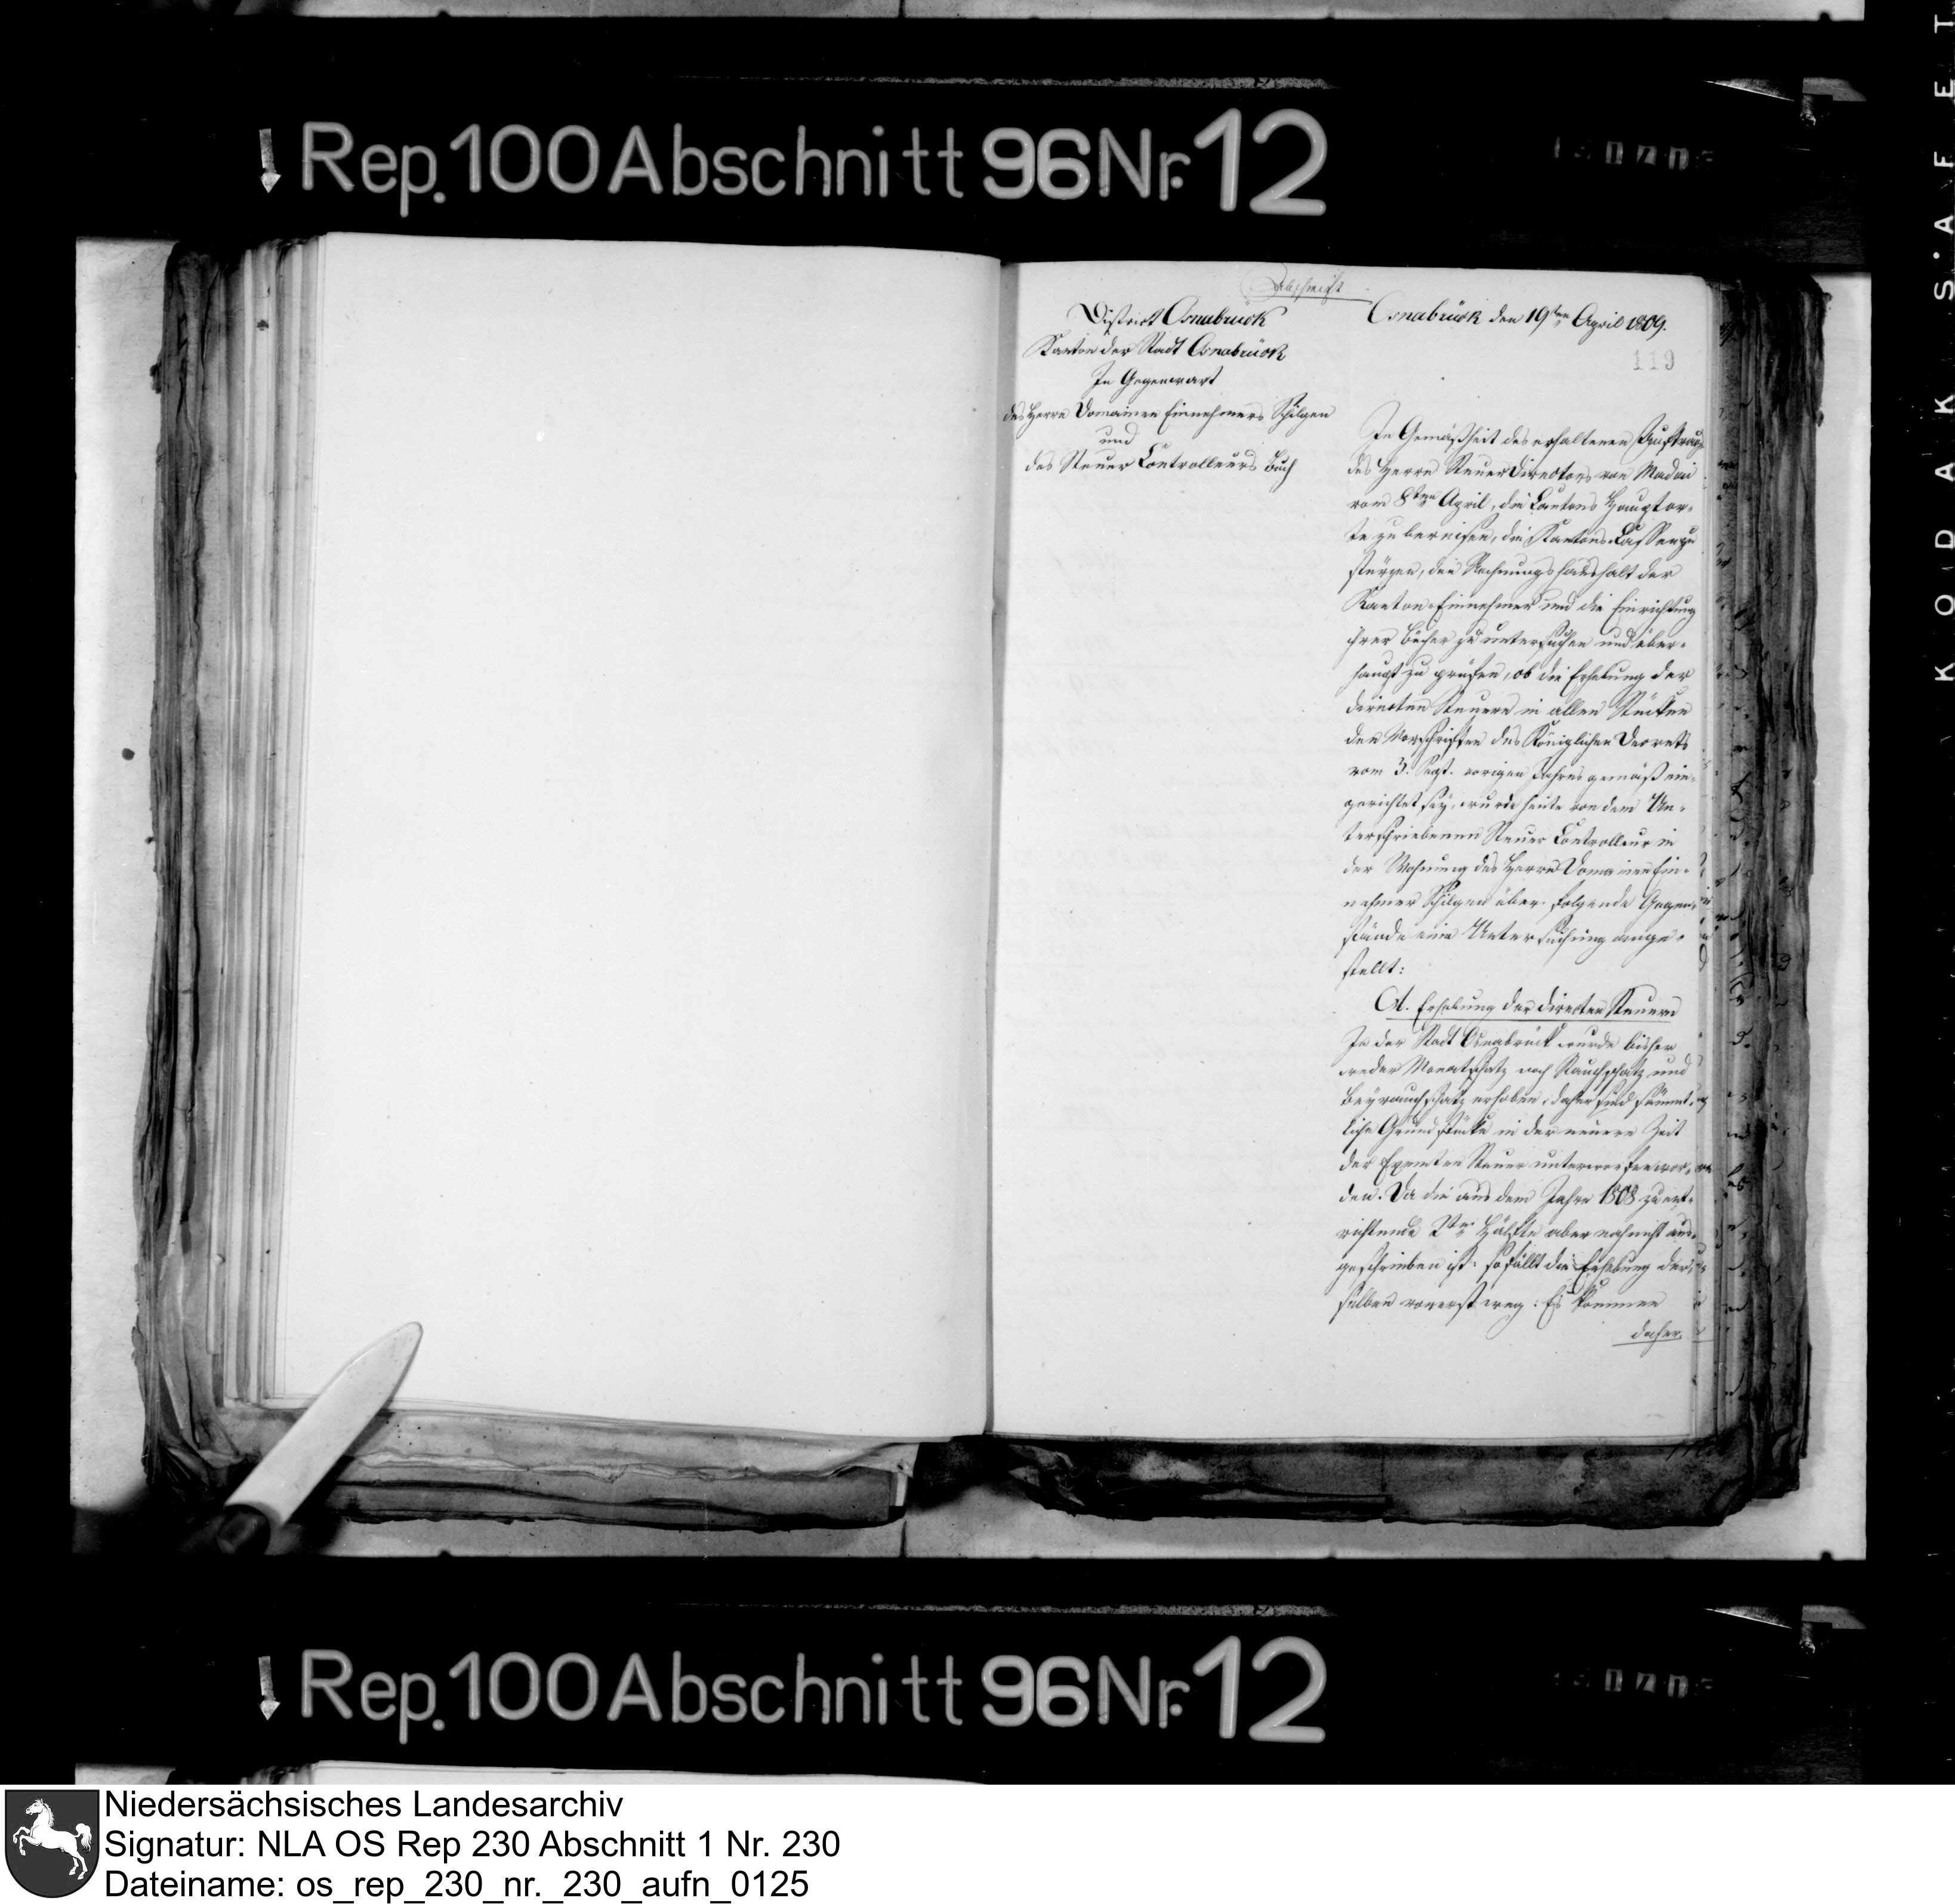 Rep. 100 Abschnitt 96 Nr. 12
Abschrift
District Osnabrück
Kanton der Stadt Osnabrück
In Gegenwart
des Herrn Domainen Einnehmers Schilgen
und
des Steuer Controlleurs Buch
Osnabrück den 19ten April 1809.
119
In Gemäßheit des erhaltenen Auftrags
des Herrn Steuer Directors von Madai
vom 8ten April, die Cantons Hauptor-
te zu bereisen, die Kantons Cassen zu
stürzen, den Rechnungshaushalt der
Kanton-Einnehmer und die Einrichtung
ihrer Bücher zu untersuchen und über-
haupt zu prüfen, ob die Erhebung der
directen Steuern in allen Stücken
den Vorschriften des Königlichen Decrets
vom 3. Sept. vorigen Jahres gemäß ein-
gerichtet sey, wurde heute von dem Un-
terschriebenen Steuer Controlleur in
der Wohnung des Herrn Domainen Ein-
nehmer Schilgen über folgende Gegen-
stände eine Untersuchung ange-
stellt:
A. Erhebung der directen Steuern
In der Stadt Osnabrück wurde bisher
weder Monatschatz noch Rauchschatz und
Beyrauchschatz erhoben, daher sind sämmt-
liche Grundstücke in der neuern Zeit
der Exemten Steuer unterworfen wor-
den. Da die aus dem Jahre 1808 zu ent-
richtende 2te Hälfte aber noch nicht aus-
geschrieben ist: so fällt die Erhebung der-
selben vorerst weg: Es kommen
daher
KODAK SAFET
Rep. 100 Abschnitt 96 Nr. 12
Niedersächsisches Landesarchiv
Signatur: NLA OS Rep 230 Abschnitt 1 Nr. 230
Dateiname: os_rep_230_nr._230_aufn_0125